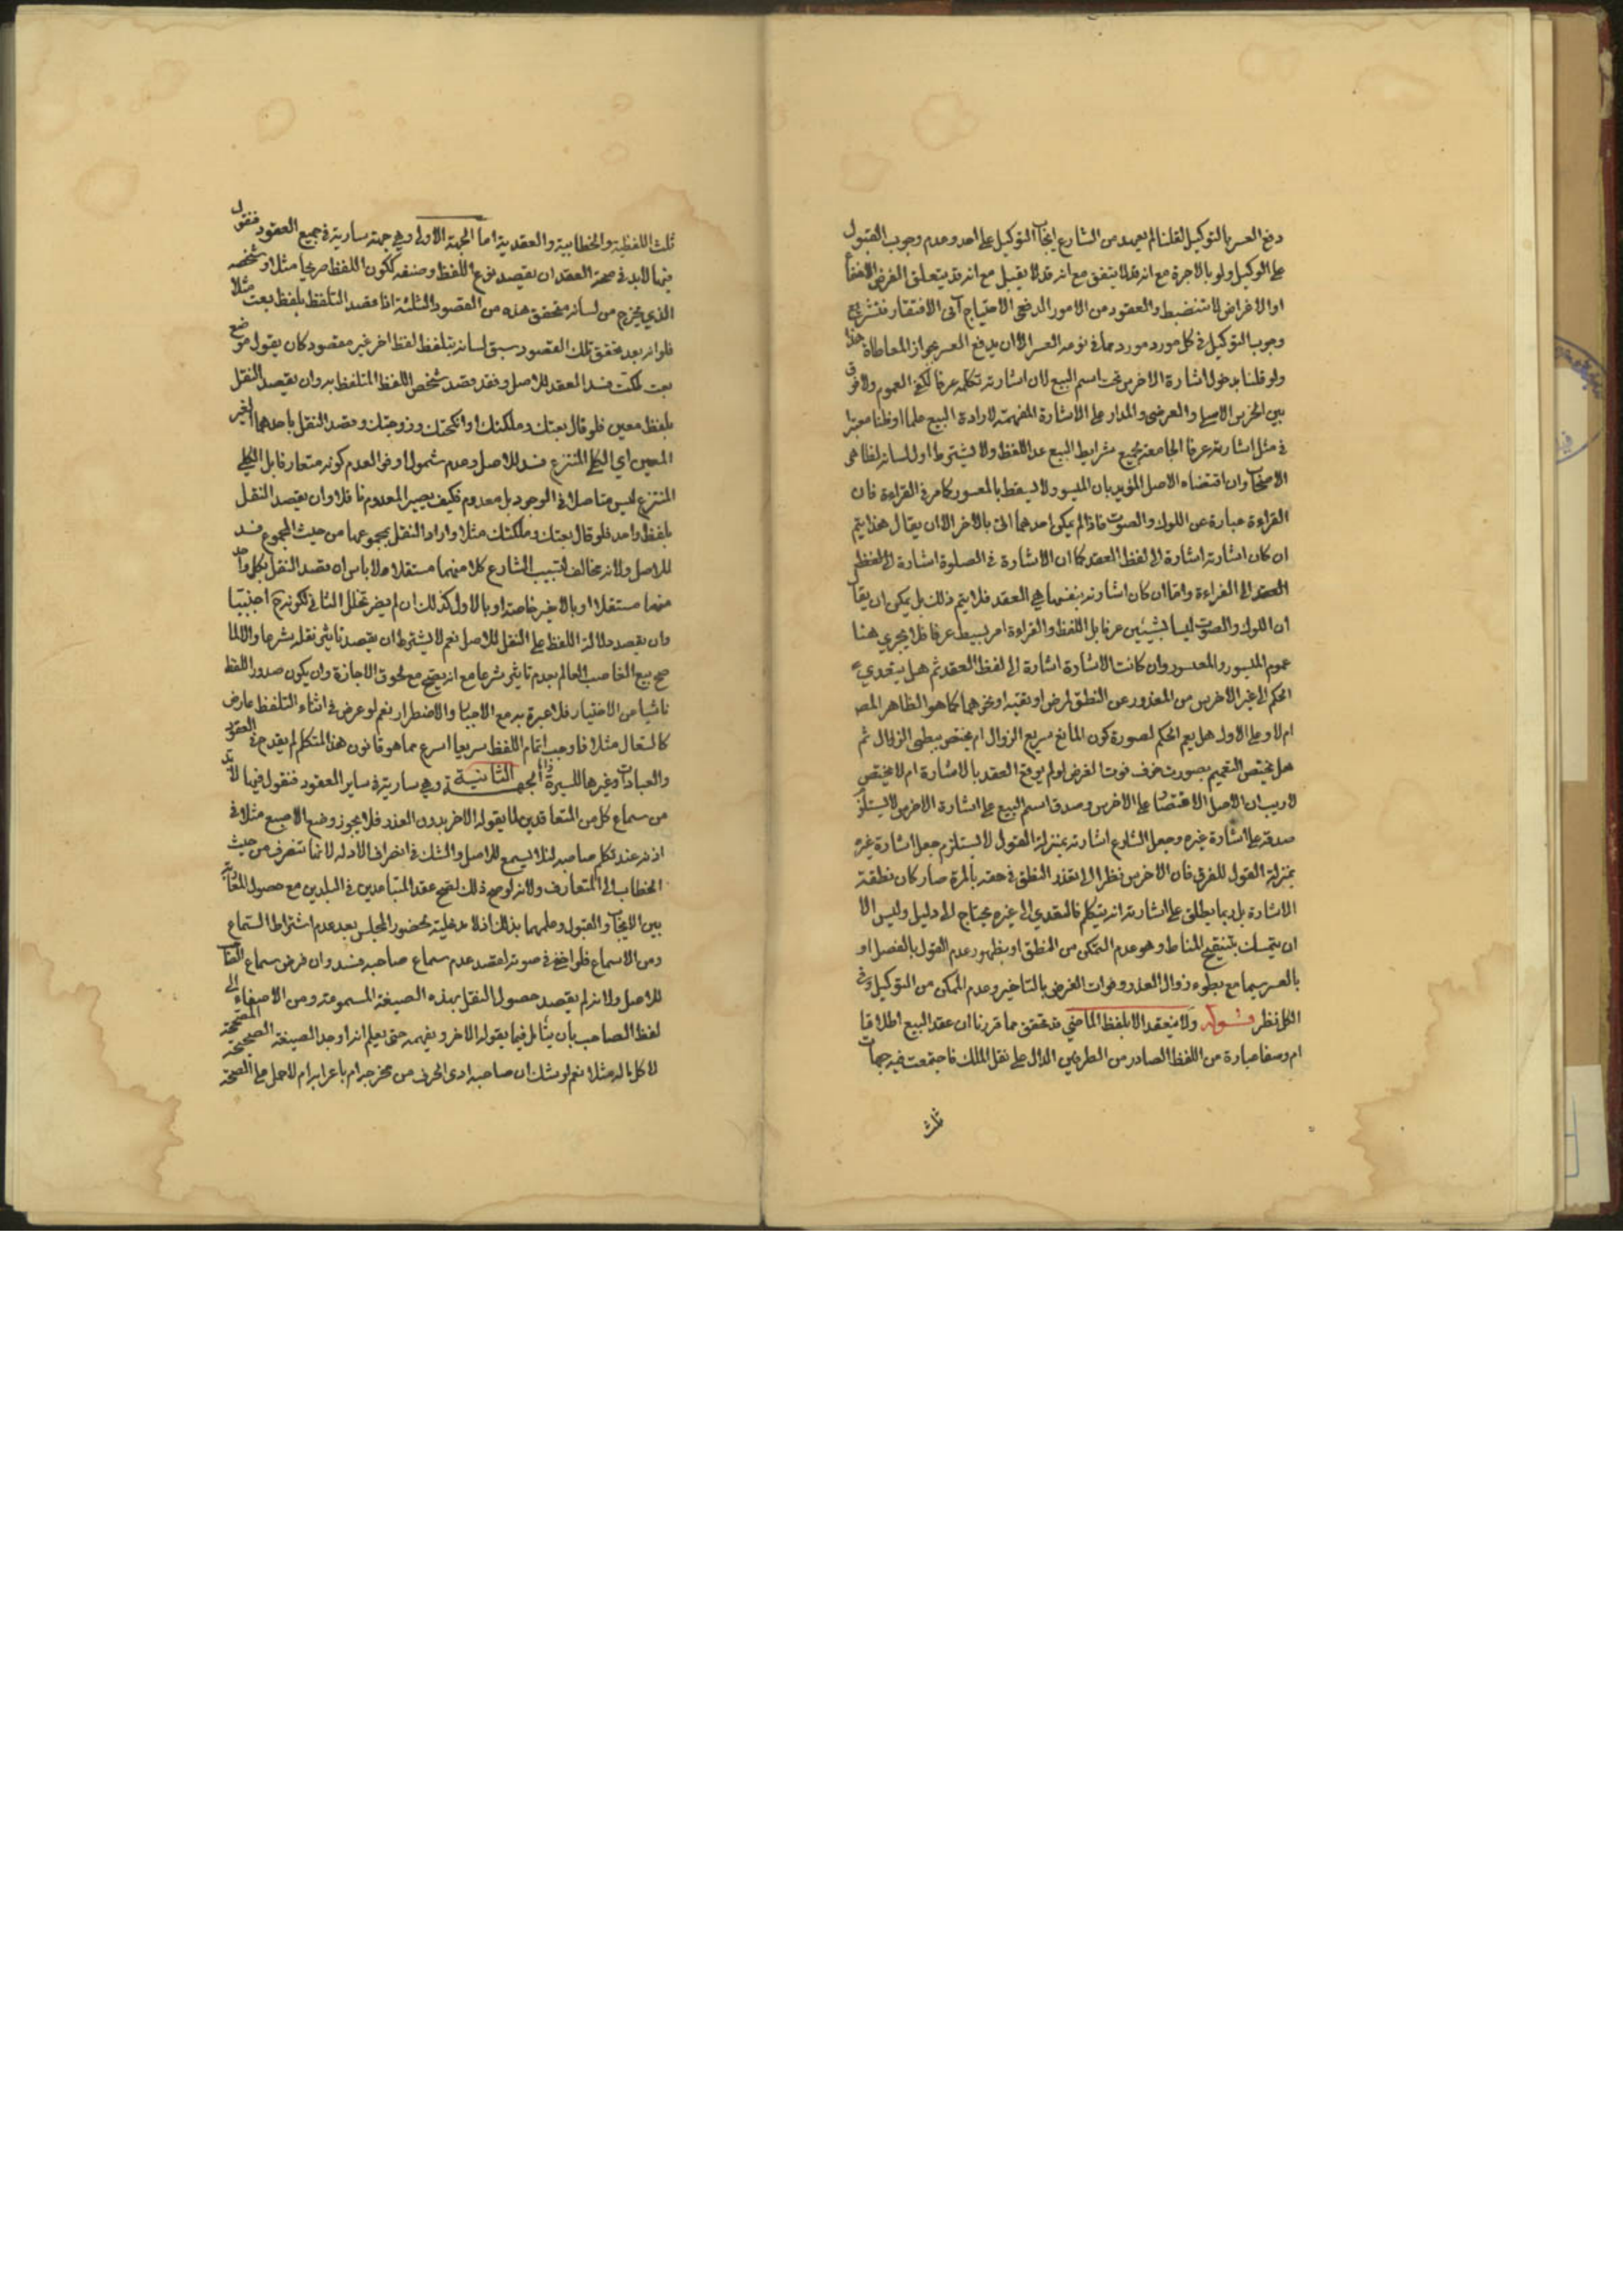 دفع العسر بالتوكيل لقلنا لم يعهد من الشارع ايجاب التوكيل على احد وعدم وجوب القبول
على الوكيل ولو بالاجرة مع انه قد لا يتفق مع انه قد لا يقبل مع انه قد يتعلق الغرض
او الاغراض لا تنضبط والعقود من الامور الاحتياج الافتقار فتشريع
وجوب التوكيل في كل مورد مورد مما في نوعه العسر الا ان يدفع العسر بجواز المعاطاة
ولو قلنا بدخول اشارة الاخرس تحت اسم البيع لان اشارته تكلمه عرفا لكفى العموم ولا فرق
بين الخرس الاصلي والعرضي والمدار على الاشارة المفهمة لارادة البيع علما او ظنا معتبرا
في مثل اشارته عرفا الجامعة لجميع شرايط البيع عدا اللفظ ولا يشترط
وان اقتضاه الاصل المؤيد بان الميسور لا يسقط بالمعسور كما مر في القراءة فان
القراءة عبارة عن اللوك والصوت فاذا لم يمكن احدهما اتى بالاخر الا ان يقال هذا يتم
ان كان اشارته اشارة الى لفظ العقد كما ان الاشارة في الصلوة اشارة الى
القراءة واما ان كان اشارته بنفسها هي العقد فلا يتم ذلك بل يمكن ان يقال
ان اللوك والصوت ليسا بشيئين عرفا بل اللفظ والقراءة امر بسيط عرفا فلا يجري هنا
عموم الميسور والمعسور وان كانت الاشارة اشارة الى لفظ العقد ثم هل يتعدى
الحكم الى غير الاخرس من المعذور عن النطق لمرض او تقية او نحوهما كما هو الظاهر
ام لا وعلى الاول هل يعم الحكم لصورة كون المانع سريع الزوال ام يختص ببطيء الزوال ثم
هل يختص التعميم بصورت خوف فوت الغرض لو لم يوقع العقد بالاشارة ام لا يختص
لا ريب ان الاصل الاقتصار على الاخرس وصدق اسم البيع على اشارة الاخرس لا يستلزم
صدقه على اشارة غيره وجعل الشارع اشارته بمنزلة القول لا يستلزم جعل اشارة غيره
بمنزلة القول للفرق فان الاخرس نظرا الى تعذر النطق في حقه بالمرة صار كان نطقه
الاشارة بل ربما يطلق على اشارته انه يتكلم فالتعدي الى غيره يحتاج الى دليل وليس الا
ان يتمسك بتنقيح المناط وهو عدم التمكن من المنطق او بظهور عدم القول بالفصل او
بالعسر سيما مع بطوء زوال العذر وفوات الغرض بالتاخير وعدم التمكن من التوكيل وفي
الكل نظر قوله ولا ينعقد الا بلفظ الماضي قد تحقق مما قررنا ان عقد البيع اطلاقا
ام وصفا عبارة من اللفظ الصادر من الطرفين الدال على نقل الملك فاجتمعت فيه جهات
ثلث
ثلث اللفظية والخطابية والعقدية اما الجهة الاولى وهي جهة سارية في جميع العقود فنقول
فيها لا بد في صحة العقد ان يقصد نوع اللفظ وصنفه ككون اللفظ صريحا مثلا او شخصه
الذي يخرج من لسانه فتحقق هذه من القصود الثلثة اذا قصد التلفظ بلفظ بعت مثلا
فلو انه بعد تحقق تلك القصود سبق لسانه بتلفظ لفظ اخر غير مقصود كان يقول موضع
بعت ملكت فسد العقد للاصل وفقد قصد شخص اللفظ المتلفظ به وان يقصد النقل
بلفظ معين فلو قال بعتك وملكتك او انكحتك وزوجتك وقصد النقل باحدهما الغير
المعين اي الكلي المنتزع فسد للاصل وعدم شمول اوفوا لعدم كونه متعارفا بل الكلي
المنتزع ليس متاصلا في الوجود بل معدوم فكيف يصير المعدوم ناقلا وان يقصد النقل
بلفظ واحد فلو قال بعتك وملكتك مثلا واراد النقل بمجموعهما من حيث المجموع فسد
للاصل ولانه مخالف لتسبيب الشارع كلا منهما مستقلا ولا باس ان قصد النقل بكل واحد
منهما مستقلا او بالاخير خاصة او بالاول كذلك ان لم يضر تخلل الثاني لكونه ح اجنبيا
وان يقصد دلالة اللفظ على النقل للاصل نعم لا يشترط ان يقصد تاثير نقله شرعا والا لما
صح بيع الغاصب العالم بعدم تاثيره شرعا مع انه يصح مع لحوق الاجازة وان يكون صدور اللفظ
ناشيا عن الاختيار فلا عبرة به مع الاجبار والاضطرار نعم لو عرض في اثناء التلفظ عارض
كالسعال مثلا فاوجب اتمام اللفظ سريعا اسرع مما هو قانون هذا المتكلم لم يقدح في العقود
والعبادات وغيرها للسيرة واما الجهة الثانية وهي سارية في ساير العقود فنقول فيها لا بد
من سماع كل من المتعاقدين لما يقوله الاخر بدون العذر فلا يجوز وضع الاصبع مثلا في
اذنه عند تكلم صاحبه لئلا يسمع للاصل والشك في انصراف الادلة لانها تنصرف من حيث
الخطاب الى المتعارف ولانه لو صح ذلك لصح عقد المتباعدين في البلدين مع حصول المقارنة
بين الايجاب والقبول وعلمهما بذلك اذ لا مدخلية لحضور المجلس بعد عدم اشتراط استماع
ومن الاسماع فلو اخفى في صوته لقصد عدم سماع صاحبه فسد وان فرض سماع
للاصل ولانه لم يقصد حصول النقل بهذه الصيغة المسموعة ومن الاصغاء الى
لفظ الصاحب بان يتامل فيما يقوله الاخر ويفهمه حتى يعلم انه اوجد الصيغة الصحيحة
نعم لو شك ان صاحبه ادى الحرف من مخرجه ام باعرابه ام لا حمل على الصحة